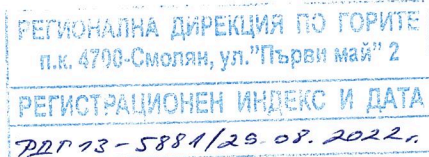 РЕГИОНАЛНА ДИРЕКЦИЯ ПО ГОРИТЕ
п.к. 4700-Смолян, ул."Първи май" 2
РЕГИСТРАЦИОНЕН ИНДЕКС И ДАТА
РДГ13-5881/29.08.2022г.